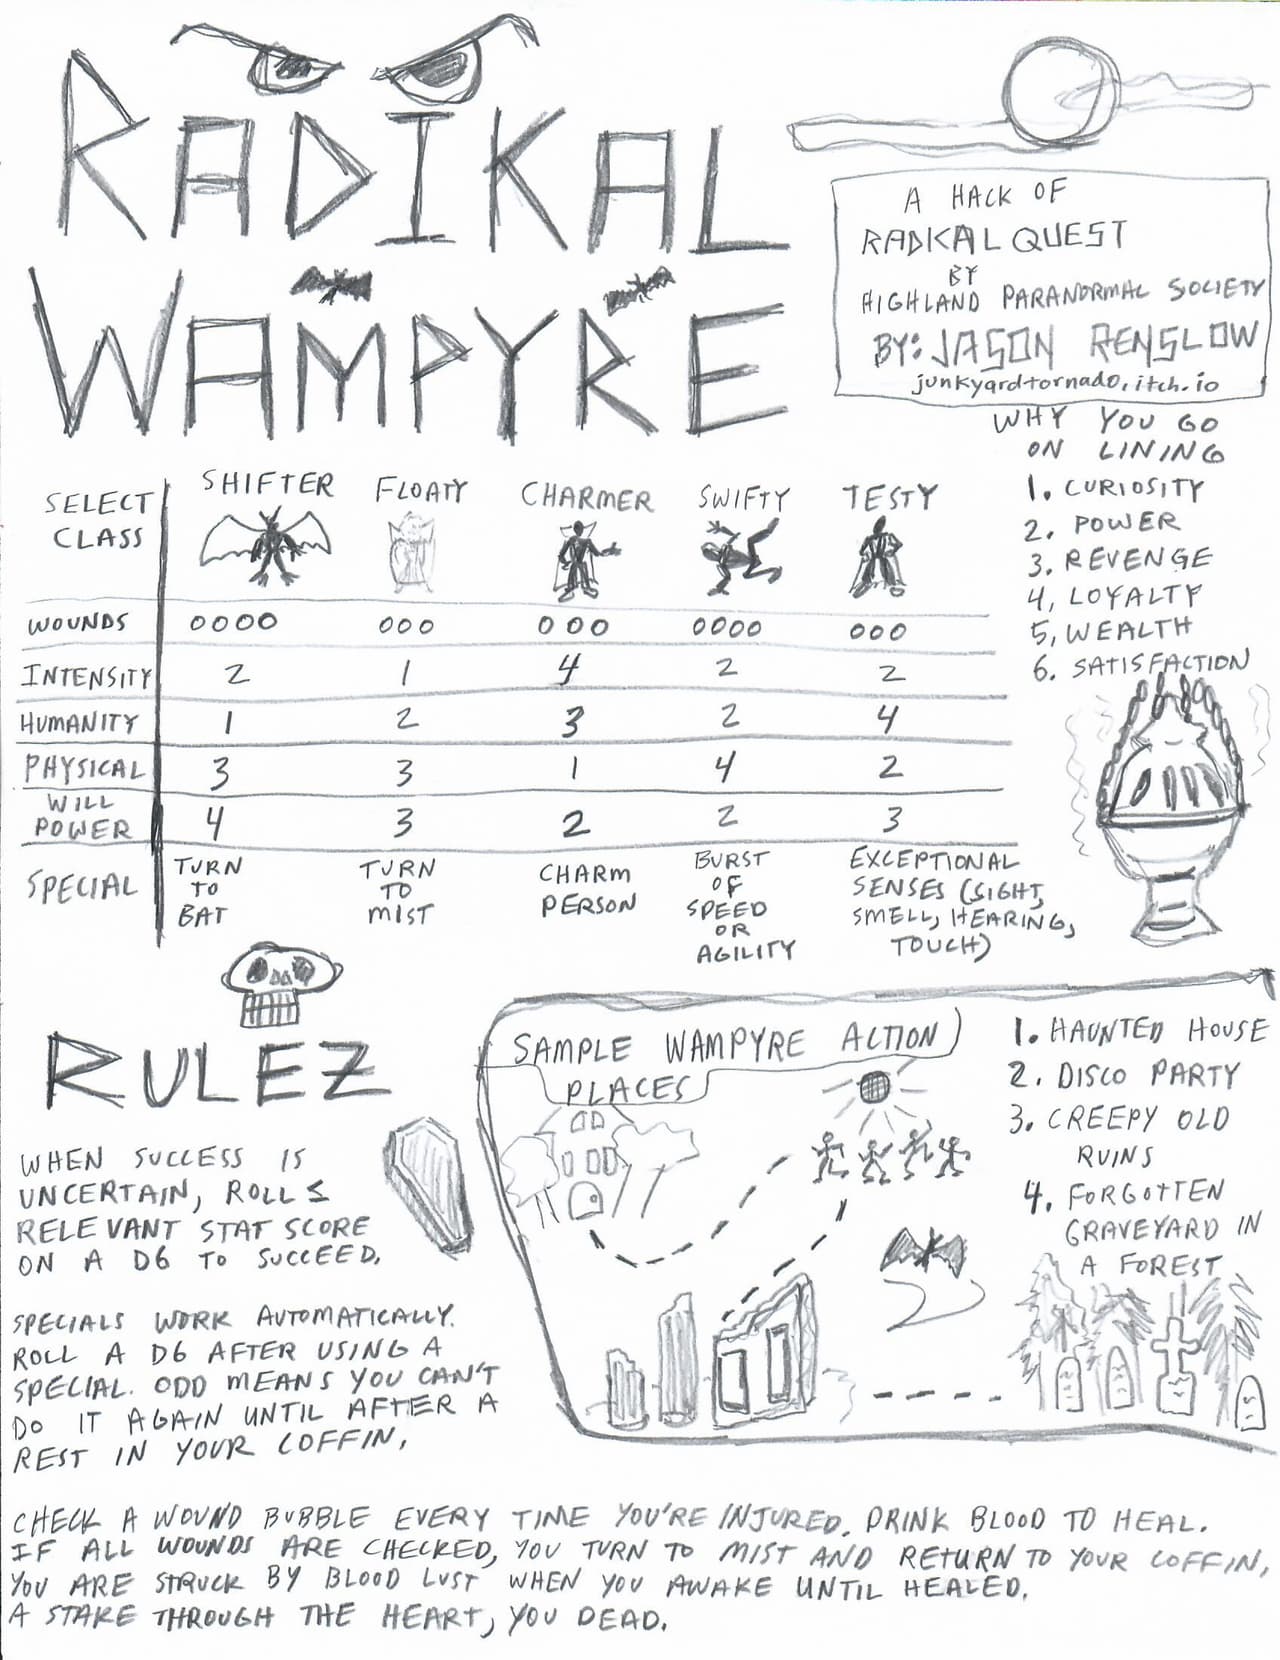 RADIKAL
WAMPYRE
A HACK OF
RADIKAL QUEST
BY
HIGHLAND PARANORMAL SOCIETY
BY: JASON RENSLOW
junkyardtornado.itch.io
WHY YOU GO
ON LINING
1. CURIOSITY
2. POWER
3. REVENGE
4, LOYALTY
5, WEALTH
6. SATISFACTION
SELECT CLASS SHIFTER FLOATY CHARMER SWIFTY TESTY
WOUNDS 0000 000 000 0000 000
INTENSITY 2 1 4 2 2
HUMANITY 1 2 3 2 4
PHYSICAL 3 3 1 4 2
WILL POWER 4 3 2 2 3
SPECIAL
TURN
TO
BAT
TURN
TO
MIST
CHARM
PERSON
BURST
OF
SPEED
OR
AGILITY
EXCEPTIONAL
SENSES (SIGHT,
SMELL, HEARING,
TOUCH)
RULEZ
WHEN SUCCESS IS
UNCERTAIN, ROLL ≤
RELEVANT STAT SCORE
ON A D6 TO SUCCEED.
SPECIALS WORK AUTOMATICALLY.
ROLL A D6 AFTER USING A
SPECIAL. ODD MEANS YOU CAN'T
DO IT AGAIN UNTIL AFTER A
REST IN YOUR COFFIN.
SAMPLE WAMPYRE ACTION
PLACES
1. HAUNTED HOUSE
2. DISCO PARTY
3. CREEPY OLD
RUINS
4. FORGOTTEN
GRAVEYARD IN
A FOREST
CHECK A WOUND BUBBLE EVERY TIME YOU'RE INJURED. DRINK BLOOD TO HEAL.
IF ALL WOUNDS ARE CHECKED, YOU TURN TO MIST AND RETURN TO YOUR COFFIN,
YOU ARE STRUCK BY BLOOD LUST WHEN YOU AWAKE UNTIL HEALED.
A STAKE THROUGH THE HEART, YOU DEAD.